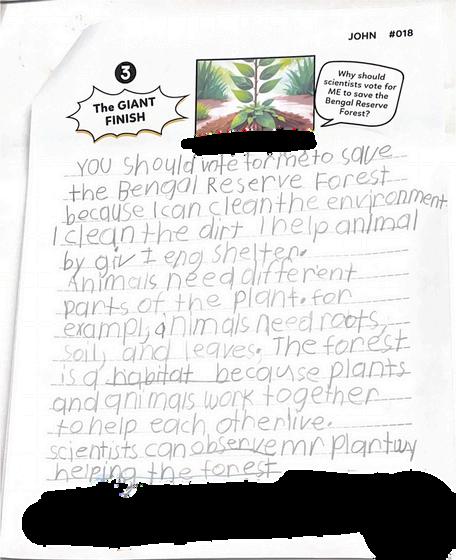 JOHN #018
3
The GIANT
FINISH
Why should
scientists vote for
ME to save the
Bengal Reserve
Forest?
YOU should vote for me to save
the Bengal Reserve Forest
because I can clean the environment.
I clean the dirt I help animal
by giv I eng shelter.
Animals need different
parts of the plant. for
exampl, animals need roots,
soil, and leaves. The forest
is a habitat because plants
and animals work together
to help each other live.
scientists can observe mr plant
helping the forest